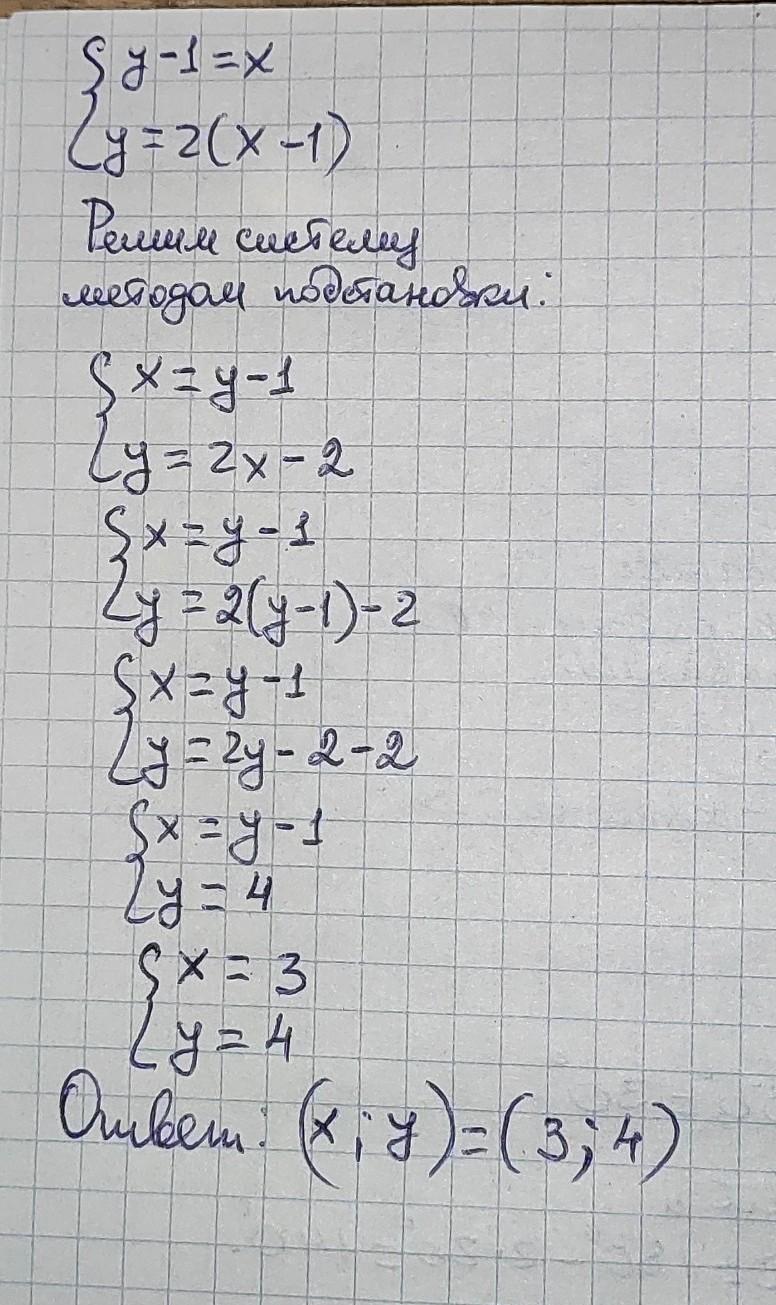 y-1=x
y=2(x-1)
Решим систему
методом подстановки:
x=y-1
y=2x-2
x=y-1
y=2(y-1)-2
x=y-1
y=2y-2-2
x=y-1
y=4
x=3
y=4
Ответ: (x;y)=(3;4)